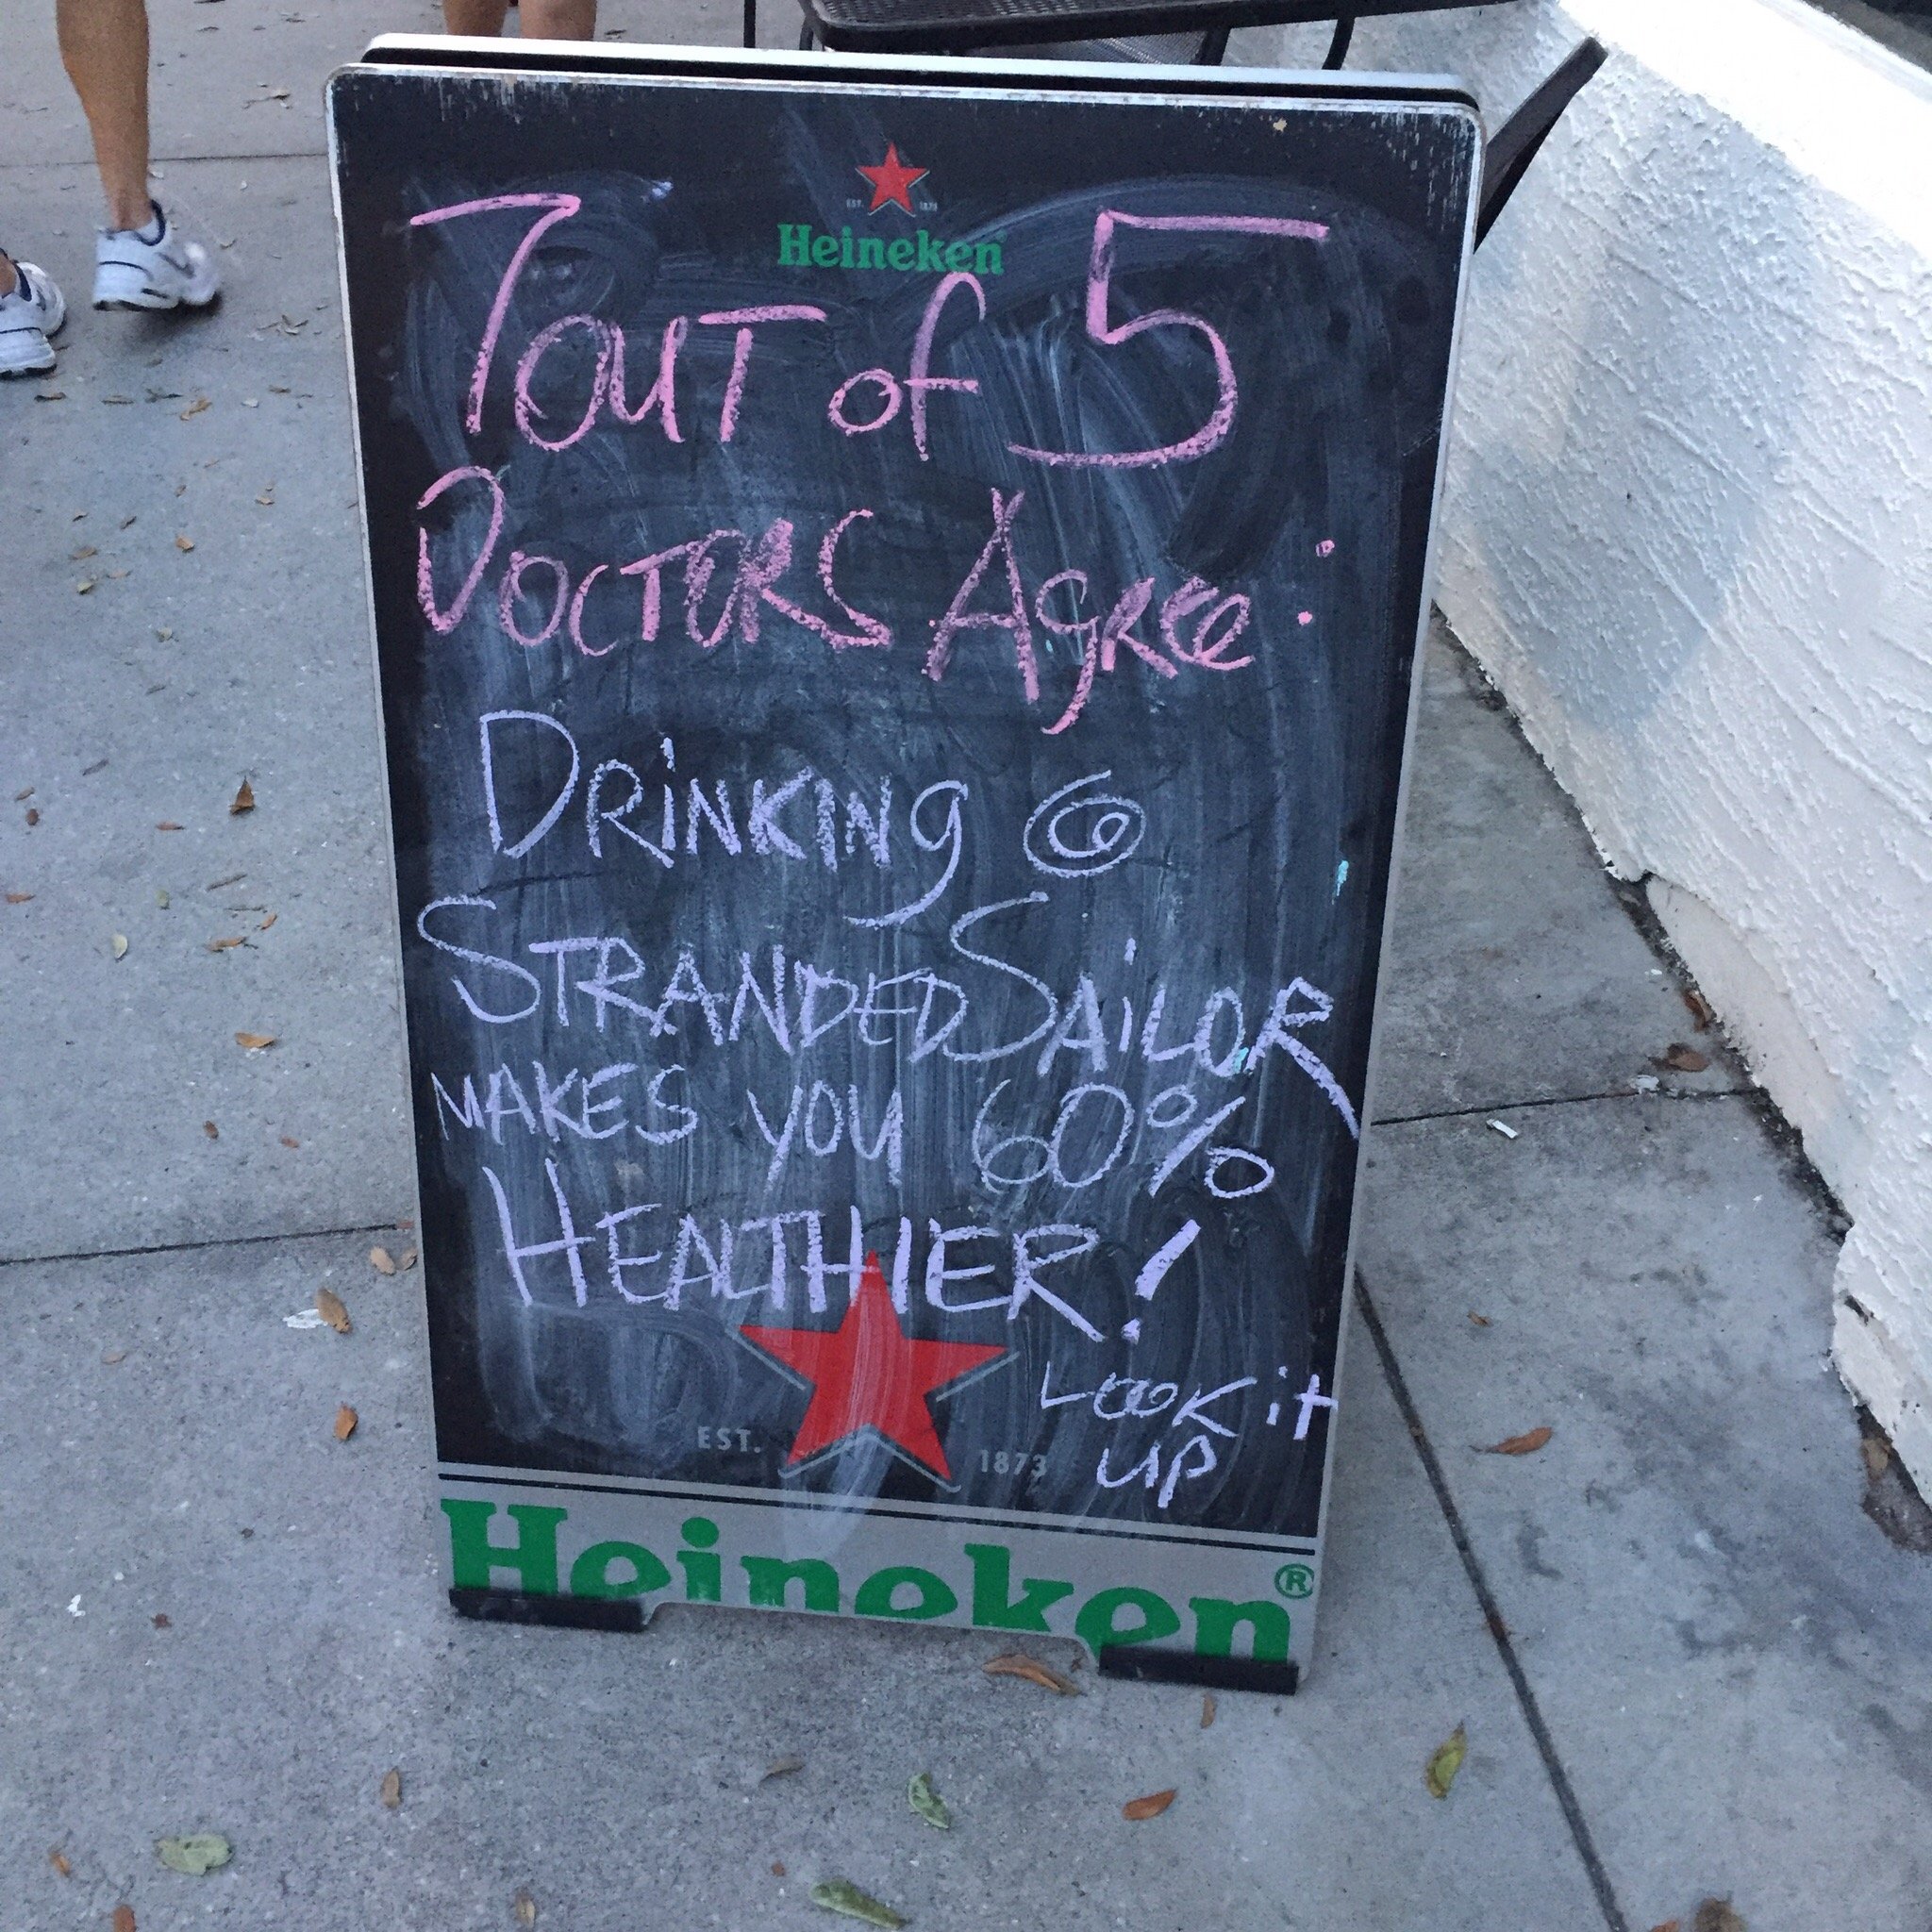 EST. 1873
Heineken
7 OUT of 5
DOCTORS AGREE:
DRiNKiNg @
STRANDED SAiLOR
MAKES YOU 60%
HEALTHIER!
LOOK it
UP
EST. 1873
Heineken®